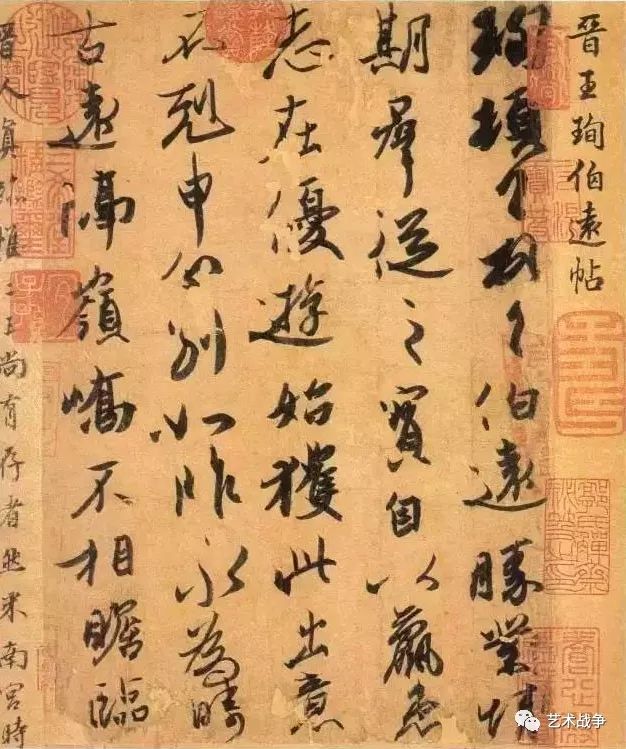 晋王珣伯遠帖
珣頓首頓首伯遠勝業情
期群從之寶自以羸患
志在優遊始獲此出意
不剋申分别如昨永為疇
古遠隔嶺嶠不相瞻臨
晋人真蹟惟二王尚有存者然米南宮時
艺术战争